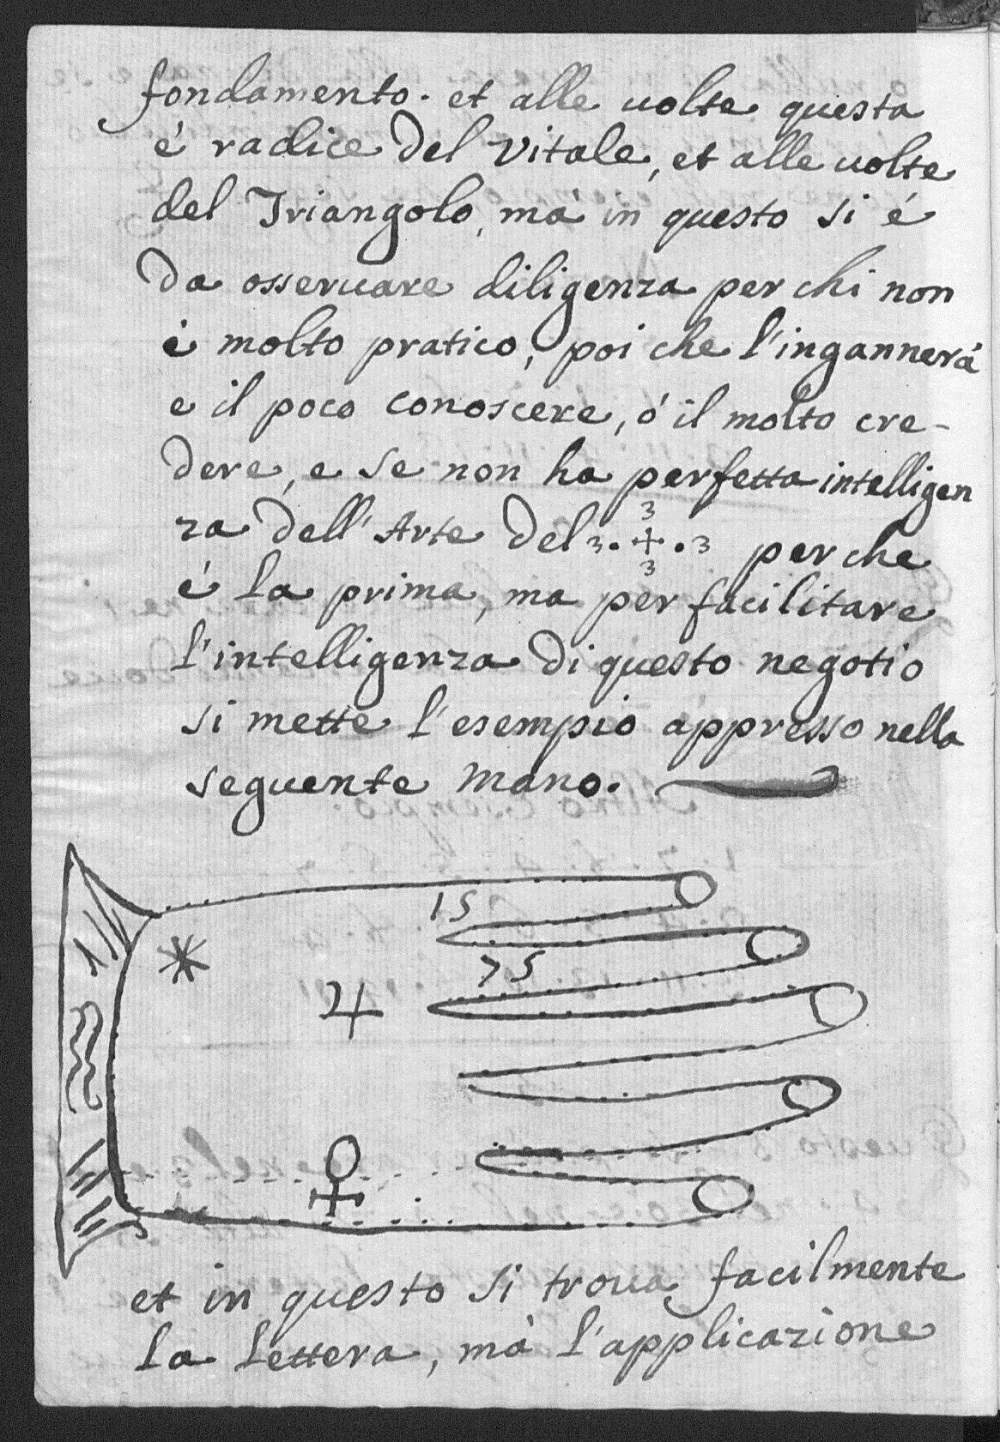 fondamento. et alle uolte questa
é radice Del Vitale, et alle uolte
del Triangolo, má in questo si é
Da osseruare diligenza per chi non
é molto pratico, poi che l'ingannerá
e il poco conoscere, ó il molto cre-
dere, e se non ha perfetta intelligen
za Dell'Arte Del 3. + . 3 perche
3
3
é la prima, ma per facilitare
l'intelligenza Di questo negotio
si mette l'esempio appresso nella
seguente mano.
15
75
♃
♀
et in questo si troua facilmente
la lettera, má l'applicazione